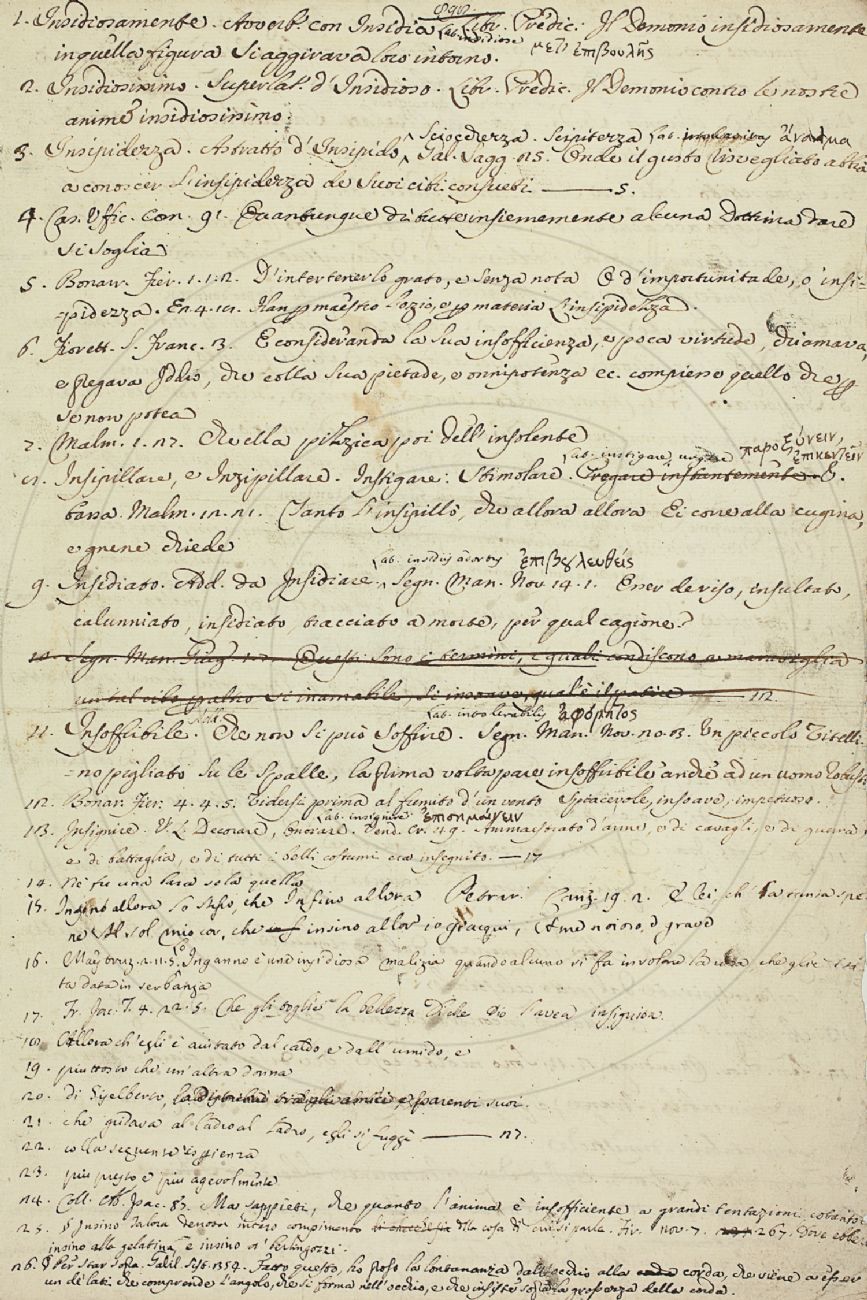 1. Insidiosamente. Avverb. con Insidia. Lat. insidiose μετ' ἐπιβουλῆς Libr. Predic. Il Demonio insidiosamente
in quella figura si aggirava loro intorno.
2. Insidiosissimo. Superlat. d'Insidioso. Libr. Predic. Il Demonio contro le nostre
anime insidiosissimo.
3. Insipidezza. Astratto d'Insipido, Sciocchezza. Scipitezza Lat. Gal. Sagg. Onde il gusto risvegliato abbia
a conoscer l'insipidezza de suoi cibi consueti ——— 5.
4. Cas. Uffic. Com. 91. Quantunque di tutte insiememente alcuna dottrina dare
si soglia
5. Bonarr. Fier. 1.1.2. D'intertenerlo grato, e senza nota O d'importunitade, o insi-
pidezza. maestro l'ozio, e materia l'insipidezza.
6. Fiorett. S. Franc. 13. E considerando la sua insofficienza, e poca virtude, chiamava,
e pregava Iddio, che colla sua pietade, e onnipotenza ec. compiesse quello che
se non potea
7. Malm. 1. Ch'ella pizzica poi dell'insolente
Insipillare, e Inzipillare. Instigare. Stimolare. Lat. instigare παροξύνειν, ἐπικεντεῖν Pregare instantemente.
bassa. Malm. Tanto l'insipilla, che allora allora Ei corre alla cugina,
e gnene chiede
9. Insidiato. Add. da Insidiare. Lat. insidiis ἐπιβουλευθείς Segn. Man. Nov. 14.1. Esser deriso, insultato,
calunniato, insidiato, tracciato a morte, per qual cagione?
10. Segn. Man. Questi sono i termini, i quali condiscono a maraviglia
un tal cibo per altro sì inamabile, sì insoave, qual'è il patire ———
11. Insoffribile. Add. Che non si può soffrire. Lat. intolerabilis ἀφόρητος Segn. Man. Nov. Un piccolo Vitelli-
no pigliato su le spalle, la prima volta pare insoffribile anche ad un uomo robusto
Bonar. Fier. 4.4.5. prima al fumito d'un vento spiacevole, insoave, impetuoso.
Insignire. V. L. Decorare, onorare. Lat. insignire ἐπισημαίνειν Ammaestrato d'arme, e di cavagli, e di guerra,
e di battaglia, e di tutti i belli costumi era insegnito. — 17
14. Nè fu una sola quella
15. Insino allora. Lo stesso, che Infino allora Petrar. Canz. 19.2. E lei ch'
sol mio cor, che insino allor' io giacqui, A me noioso, e grave
16. Maestruzz. Inganno è une insidiosa malizia quando alcuno si fa involare la cosa, che gli è sta
ta data in serbanza
17. Fr. Jac. T. 4. 22.5. Che gli toglie la bellezza Di che Dio l'avea insignita.
Allora ch'egli è aiutato dal caldo, e dall'umido, e
19. piuttosto che un'altra donna
20. Di Gigelberto, la distribuì tra gli amici, e parenti suoi.
21. che gridava al ladro al ladro, egli si fuggì ———
22. colla seguente
23. più presto e più agevolmente
Coll. Ab. Isac. Ma sappiati, che quanto l'anima è insofficiente a grandi tentazioni, cotanto è
25. Insino talora denota intero compimento della cosa di cui si parla. Fir. nov. 7. 267. Dove ebbe
insino alla gelatina, e insino a' berlingozzi.
26. Per star sopra. Galil. Sist. 354. Fatto questo, ho preso la lontananza dall'occhio alla corda, che viene a esser
un de' lati che comprende l'angolo, che si forma nell'occhio, e che insiste sopra la grossezza della corda.